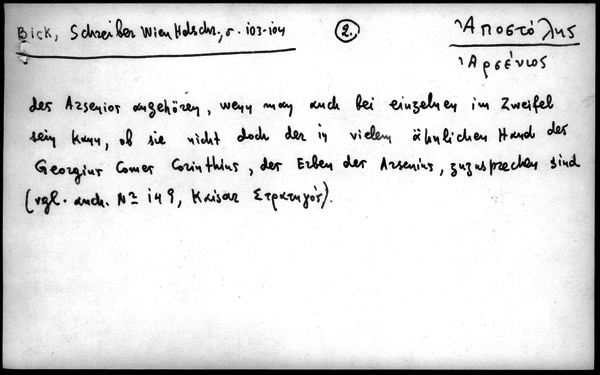 Bick, Schreiber Wien Hdschr., σ. 103-104
2.
Ἀποστόλης
Ἀρσένιος
des Arsenios angehören, wenn man auch bei einzelnen im Zweifel
sein kann, ob sie nicht doch der in vielem ähnlichen Hand des
Georgius Comes Corinthius, des Erben des Arsenius, zuzusprechen sind
(vgl. auch. Nº 149, Kaisar Στρατηγός).